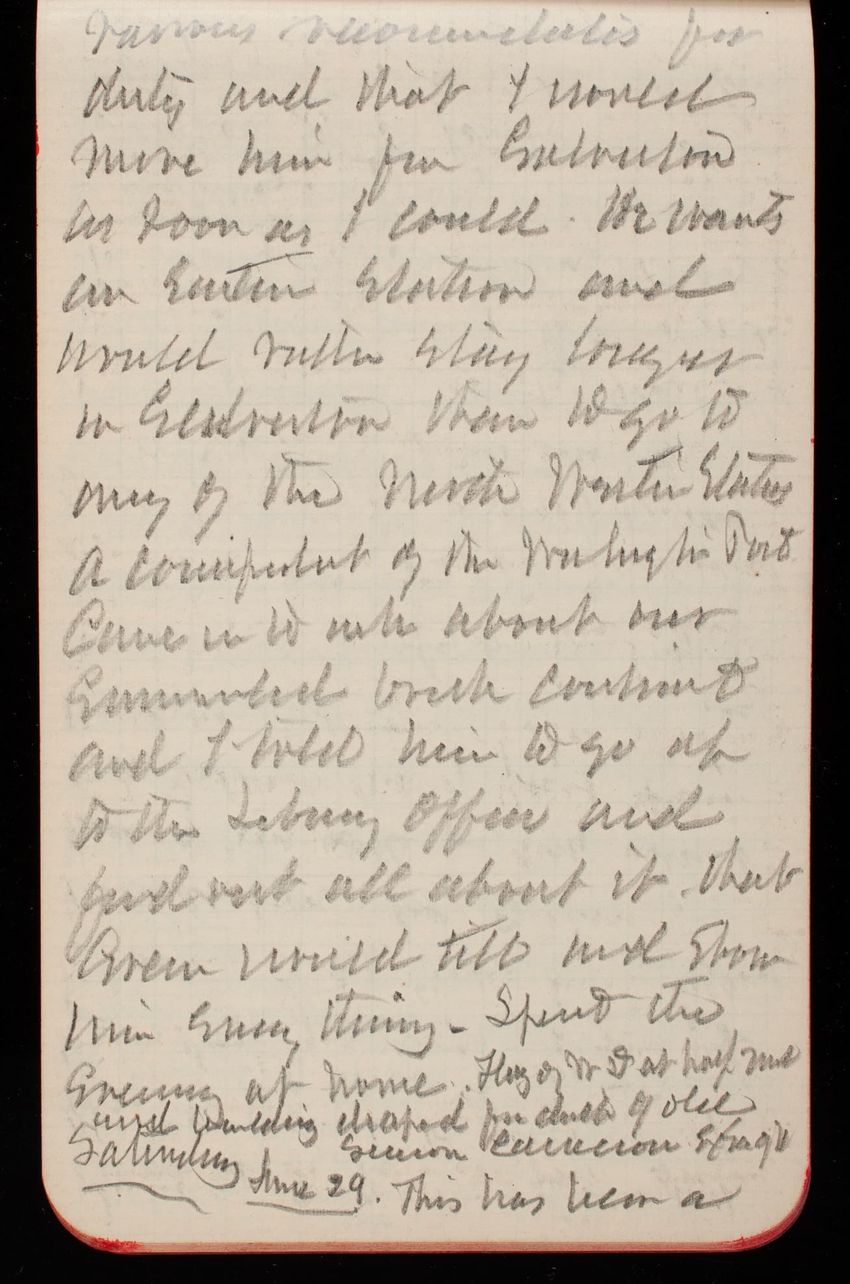 various recommendations for
duty and that I would
move him from Galveston
as soon as I could. He wants
an Eastern Station and
would rather stay longer
in Galveston than to go to
any of the North Western States
A correspondent of the Washington Post
Came in to ask about our
Enameled brick contract
and I told him to go up
to the Library Office and
find out all about it that
Green would tell and show
him Every thing - Spent the
Evening at home. Flag of W D at half mast
and building draped for death of old
Simon Cameron Ex
Saturday June 29. This has been a